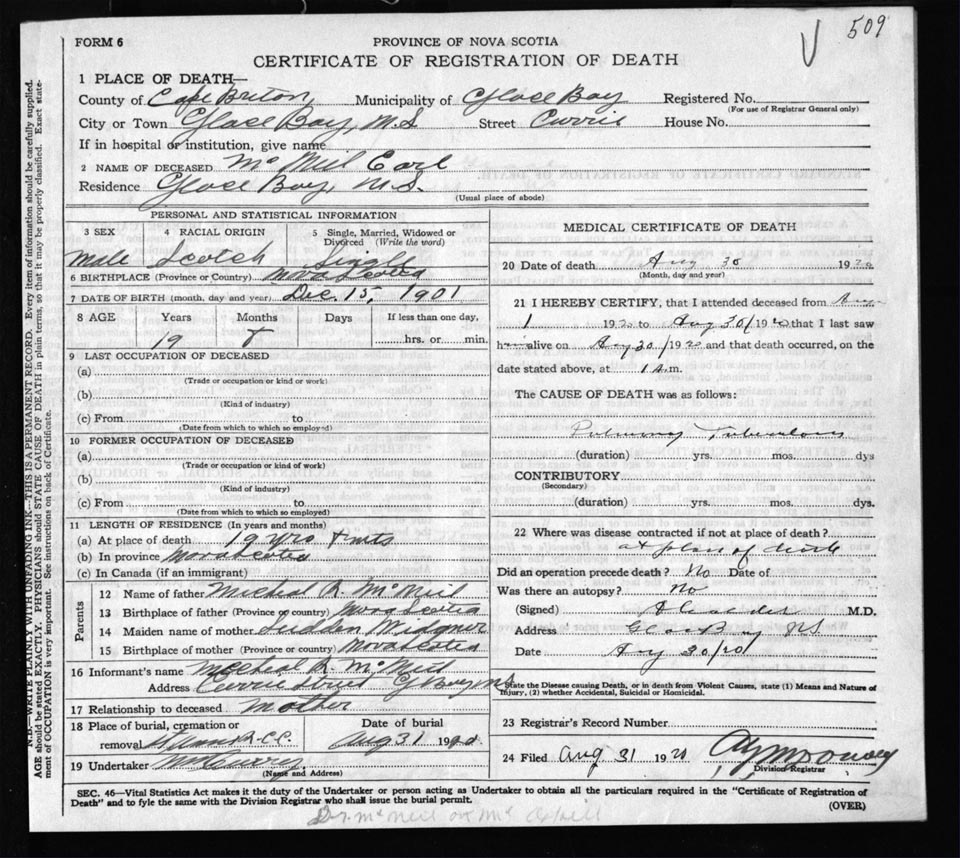 509
FORM 6
PROVINCE OF NOVA SCOTIA
CERTIFICATE OF REGISTRATION OF DEATH
1 PLACE OF DEATH—
County of Cape Breton, Municipality of Glace Bay Registered No.
(For use of Registrar General only)
City or Town Glace Bay, N.S. Street Currie House No.
If in hospital or institution, give name
2 NAME OF DECEASED McNeil Earl
Residence Glace Bay, N.S.
(Usual place of abode)
PERSONAL AND STATISTICAL INFORMATION
3 SEX 4 RACIAL ORIGIN 5 Single, Married, Widowed or Divorced (Write the word)
Male Scotch Single
6 BIRTHPLACE (Province or Country) Nova Scotia
7 DATE OF BIRTH (month, day and year) Dec. 15, 1901
8 AGE Years Months Days If less than one day,
19 8 hrs. or min.
9 LAST OCCUPATION OF DECEASED
(a)
(Trade or occupation or kind or work)
(b)
(Kind of industry)
(c) From to
(Date from which to which so employed)
10 FORMER OCCUPATION OF DECEASED
(a)
(Trade or occupation or kind of work)
(b)
(Kind of industry)
(c) From to
(Date from which to which so employed)
11 LENGTH OF RESIDENCE (In years and months)
(a) At place of death 19 yrs 8 mts
(b) In province Nova Scotia
(c) In Canada (if an immigrant)
Parents
12 Name of father Micheal R. McNeil
13 Birthplace of father (Province or country) Nova Scotia
14 Maiden name of mother
15 Birthplace of mother (Province or country) Nova Scotia
16 Informant's name Micheal R. McNeil
Address Currie Street G Bay NS
17 Relationship to deceased Mother
18 Place of burial, cremation or removal R.C.C. Date of burial Aug 31 1920
19 Undertaker McCurry
(Name and Address)
MEDICAL CERTIFICATE OF DEATH
20 Date of death Aug 30 1920
(Month, day and year)
21 I HEREBY CERTIFY, that I attended deceased from Aug
1 1920 to Aug 30/1920 that I last saw
him alive on Aug 30/1920 and that death occurred, on the
date stated above, at 1 A.m.
The CAUSE OF DEATH was as follows:
Pulmonary Tuberculosis
(duration) yrs. mos. dys
CONTRIBUTORY
(Secondary)
(duration) yrs. mos. dys.
22 Where was disease contracted if not at place of death?
at place of death
Did an operation precede death? No Date of
Was there an autopsy? No
(Signed) M.D.
Address Glace Bay NS
Date Aug 30/20
State the Disease causing Death, or in death from Violent Causes, state (1) Means and Nature of
Injury, (2) whether Accidental, Suicidal or Homicidal.
23 Registrar's Record Number
24 Filed Aug 31 1920
Division Registrar
SEC. 46—Vital Statistics Act makes it the duty of the Undertaker or person acting as Undertaker to obtain all the particulars required in the "Certificate of Registration of
Death" and to fyle the same with the Division Registrar who shall issue the burial permit.
(OVER)
N.B.—WRITE PLAINLY WITH UNFADING INK—THIS IS A PERMANENT RECORD. Every item of information should be carefully supplied.
AGE should be stated EXACTLY. PHYSICIANS should STATE CAUSE OF DEATH in plain terms, so that it may be properly classified. Exact statement of OCCUPATION is very important. See instructions on back of Certificate.